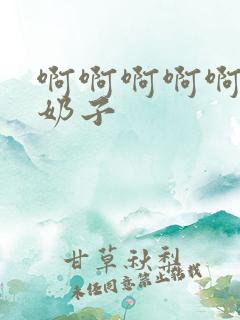 啊啊啊啊啊
奶子
甘草秋梨
未经同意禁止转载